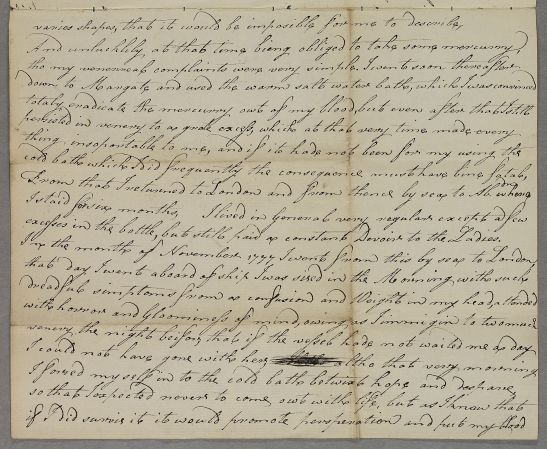 varies shapes, that it would be imposible for me to describe,
And unluckily, at that time being obliged to take some mercurry,
tho my venereal complaints were very simple. I went soon thereafter
down to Margate and used the warm salt water baths, which I was convinced
totaly eradicate the mercurry out of my blood, but even after that I still
persisted in venery to as great excess, which at that very time made every
thing insoportable to me, and if it hade not been for my using the
cold bath which I did frequently the consequence must have bine fatal,
From that I returned to London and from thence by sea to Abrdn where
I staid for six months, I lived in General very regular except a few
excesses in the bottle, but still paid a constant Devoir to the Ladies.
In the month of November 1777 I went from this by sea to London,
that day I went aboard of ship I was sized in the Morning with such
dreadfull simptoms from a confusion and Weight in my head, attended
with horror and gloominess of mind, owing as I immigin to two much
venery, the night before, that if the vessel hade not waited me a day
I could not have gone with her altho that very morning
I forsed my self in to the cold bath betwixt hope and despare,
so that I expected never to come out with life, but as I knew that
if I did survive it it would promote perspiration and put my blood